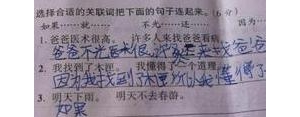 选择合适的关联词把下面的句子连起来。(6分)
如果……就…… 不光……还…… 因为
1. 爸爸医术很高。 许多人来找爸爸看病。
爸爸不光医术很 还来找爸爸
2. 我找到了木匣。 我懂得了一个道理。
因为我找到了木匣所以我懂得了
3. 明天下雨。 明天不去春游。
如果